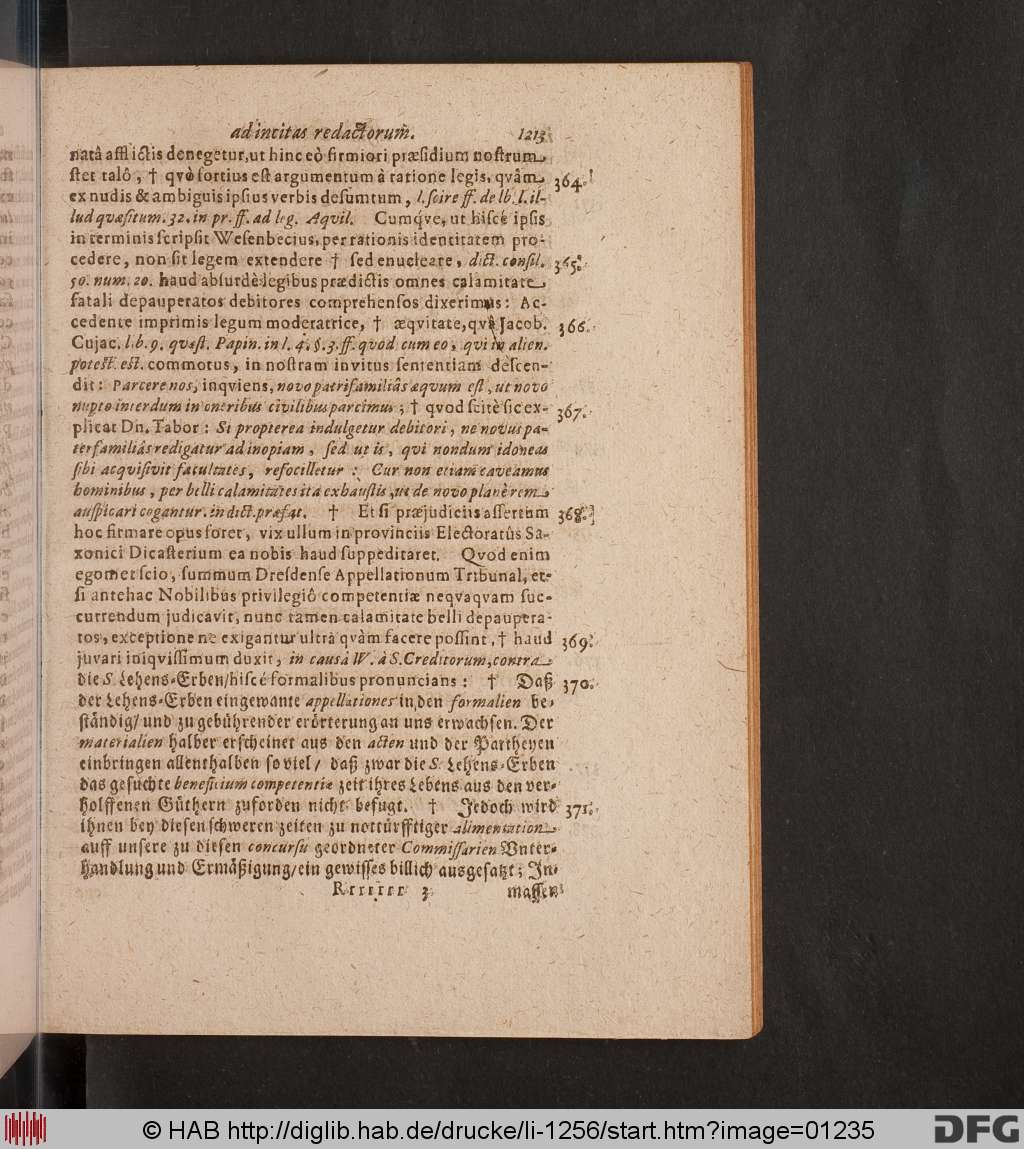 ad incitas redactorum̃. 1213
natâ afflictis denegetur, ut hinc eò firmiori præsidium nostrum
stet talô, † qvò fortius est argumentum à ratione legis, qvâm 364.
ex nudis & ambiguis ipsius verbis desumtum, l. scire ff. de lb. l. il-
lud quæsitum. 32. in pr. ff. ad leg. Aqvil. Cumqve, ut hisce ipsis
in terminis scripsit Wesenbecius, per rationis identitatem pro-
cedere, non sit legem extendere † sed enucleare, dict. consil. 365.
50. num. 20. haud absurdè legibus prædictis omnes calamitate
fatali depauperatos debitores comprehensos dixerimus: Ac-
cedente imprimis legum moderatrice, † æqvitate, qvâ Jacob. 366.
Cujac. l.b. 9. quæst. Papin. in l. 4. §. 3. ff. qvod cum eo, qvi in alien.
potest. est. commotus, in nostram invitus sententiam descen-
dit: Parcere nos, inqviens, novo patrifamiliâs æqvum est, ut novo
nupto interdum in oneribus civilibus parcimus; † qvod scitè sic ex- 367.
plicat Dn. Tabor: Si propterea indulgetur debitori, ne novus pa-
terfamiliâs redigatur ad inopiam, sed ut is, qvi nondum idoneas
sibi acqvisivit facultates, refocilletur: Cur non etiam caveamus
hominibus, per belli calamitates ita exhaustis, ut de novo planè rem
auspicari cogantur. in dict. præfat. † Et si præjudiciis assertum 368.
hoc firmare opus foret, vix ullum in provinciis Electoratûs Sa-
xonici Dicasterium ea nobis haud suppeditaret. Qvod enim
egomet scio, summum Dresdense Appellationum Tribunal, et-
si antehac Nobilibus privilegiô competentiæ neqvaqvam suc-
currendum judicavit, nunc tamen calamitate belli depaupera-
tos, exceptione ne exigantur ultrà qvàm facere possint, † haud 369.
juvari iniqvissimum duxit, in causâ W. à S. Creditorum, contra
die S. Lehens-Erben/ hisce formalibus pronuncians: † Daß 370.
der Lehens-Erben eingewante appellationes in den formalien be-
ständig/ und zu gebührender erörterung an uns erwachsen. Der
materialien halber erscheinet aus den acten und der Partheyen
einbringen allenthalben so viel/ daß zwar die S. Lehens-Erben
das gesuchte beneficium competentiæ zeit ihres Lebens aus den ver-
holffenen Güthern zufordern nicht befugt. † Jedoch wird 371.
ihnen bey diesen schweren zeiten zu nottürfftiger alimentation
auff unsere zu diesen concursu geordneter Commissarien Vnter-
handlung und Ermäßigung/ ein gewisses billich ausgesatzt; In-
Rrrrrrr 3 massen
© HAB http://diglib.hab.de/drucke/li-1256/start.htm?image=01235
DFG